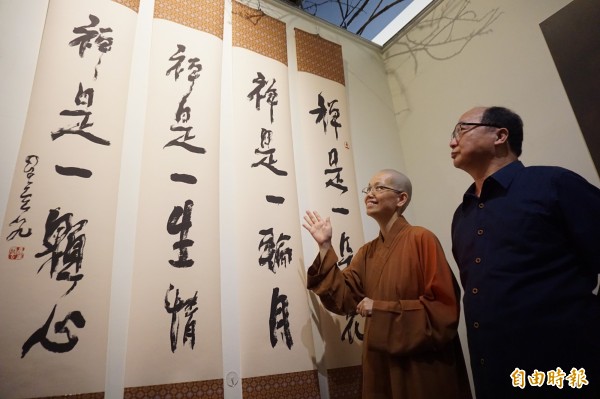 禪是一花
禪是一輪月
禪是一生情
禪是一顆心
星雲
自由時報